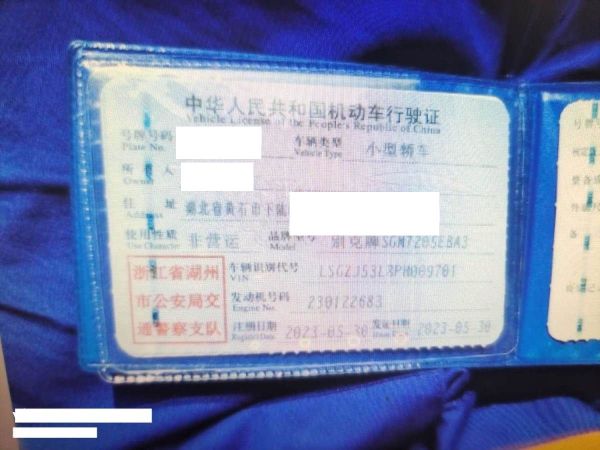 中华人民共和国机动车行驶证
Vehicle License of the People's Republic of China
号牌号码 车辆类型 小型轿车
Plate No. Vehicle Type
所有人
Owner
住址 湖北省黄石市下陆
Address
使用性质 非营运 品牌型号 别克牌SGM7205EBA3
Use Character Model
浙江省湖州 车辆识别代号
VIN
市公安局交 发动机号码 230122683
Engine No.
通警察支队 注册日期 2023-05-30 发证日期 2023-05-30
Register Date Issue Date